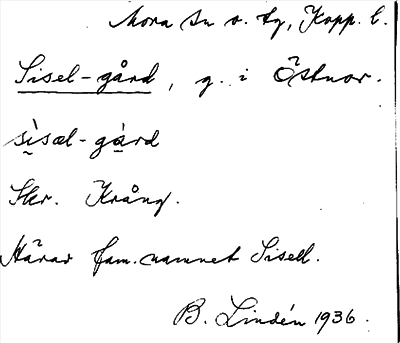 Mora sn o. tg, Kopp. l.
Sisel-gård, g. i Östnor.
sìsæl-gàrd
Skr. Krång.
Härav fam.namnet Sisell.
B. Lindén 1936.